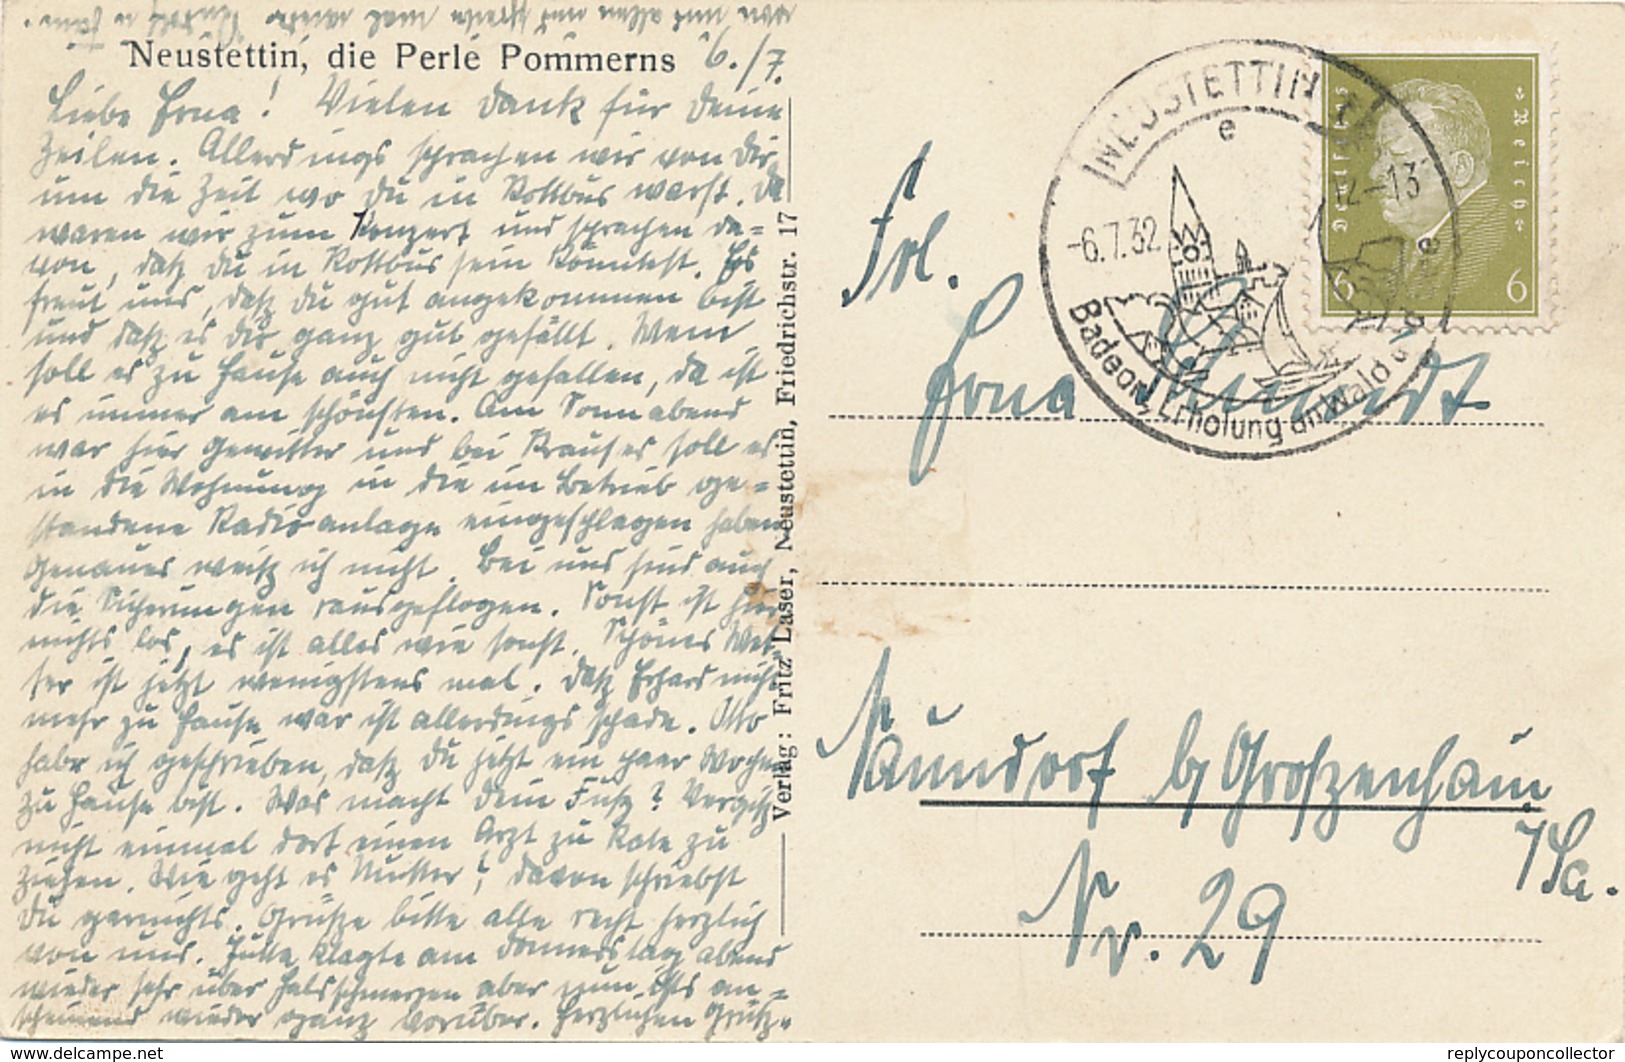 Neustettin, die Perle Pommerns
6./7.
Liebe Erna! Vielen Dank für Deine
Zeilen. Allerdings sprachen wir von Dir
um die Zeit wo Du in Kottbus warst. Da
waren wir zum Konzert und sprachen da=
von, daß Du in Kottbus sein könntest. Es
freut uns, daß Du gut angekommen bist
und daß es Dir ganz gut gefällt. Wem
soll es zu Hause auch nicht gefallen, da ist
es immer am schönsten. Am Sonnabend
war hier Gewitter und bei Krauses soll es
in die Wohnung in die im Betrieb ge=
standene Radioanlage eingeschlagen haben
Genaues weiß ich nicht. Bei uns sind auch
die Sicherungen rausgeflogen. Sonst ist hier
nichts los, es ist alles wie sonst. Schönes Wet-
ter ist jetzt wenigstens mal. Daß Erhard nicht
mehr zu Hause war ist allerdings schade. Otto
habe ich geschrieben, daß Du jetzt ein paar Wochen
zu Hause bist. Was macht Dein Fuß? Vergiß
nicht einmal dort einen Arzt zu Rate zu
ziehen. Wie geht es Mutter? davon schriebst
Du garnichts. Grüße bitte alle recht herzlich
von uns. Jutta klagte am Donnerstag abend
wieder sehr über Halsschmerzen aber nun ists an=
scheinend wieder ganz vorüber. Herzlichen Grüße
von uns allen
Verlag: Fritz Laser, Neustettin, Friedrichstr. 17
NEUSTETTIN
e
-6.7.32
12-13
e
Badeort, Erholung an Wald u.
Deutsches Reich
6 6
Frl.
Erna
Naundorf b/ Großenhain
i/Sa.
Nr. 29
replycouponcollector
www.delcampe.net